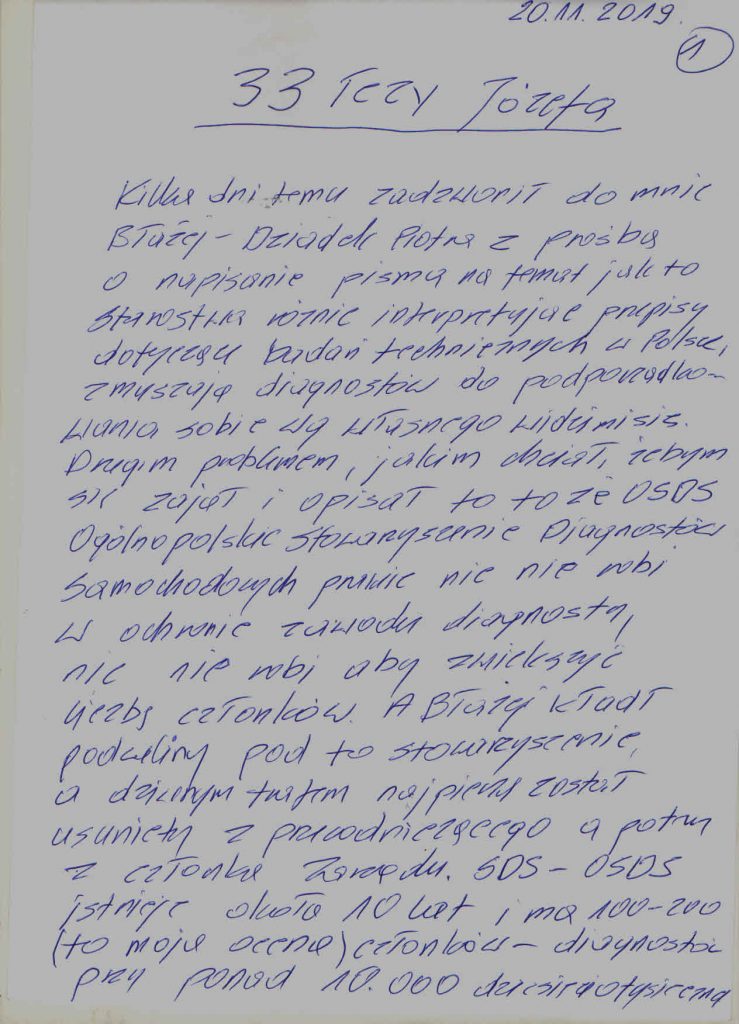 20.11.2019.
1
33 Tezy Józefa
Kilka dni temu zadzwonił do mnie
Błażej – Dziadek Piotra z prośbą
o napisanie pisma na temat jak to
starostwa różnie interpretując przepisy
dotyczące badań technicznych w Polsce,
zmuszają diagnostów do podporządko-
wania sobie wg własnego widzimisię.
Drugim problemem, jakim chciał, żebym
się zajął i opisał to to że OSDS
Ogólnopolskie Stowarzyszenie Diagnostów
Samochodowych prawie nic nie robi
w ochronie zawodu diagnosty,
nic nie robi aby zwiększyć
liczbę członków. A Błażej kładł
podwaliny pod to stowarzyszenie,
a dziwnym trafem najpierw został
usunięty z przewodniczącego a potem
z członka Zarządu. SDS – OSDS
istnieje około 10 lat i ma 100-200
(to moja ocena) członków – diagnostów
przy ponad 10.000 dziesięciotysięczna